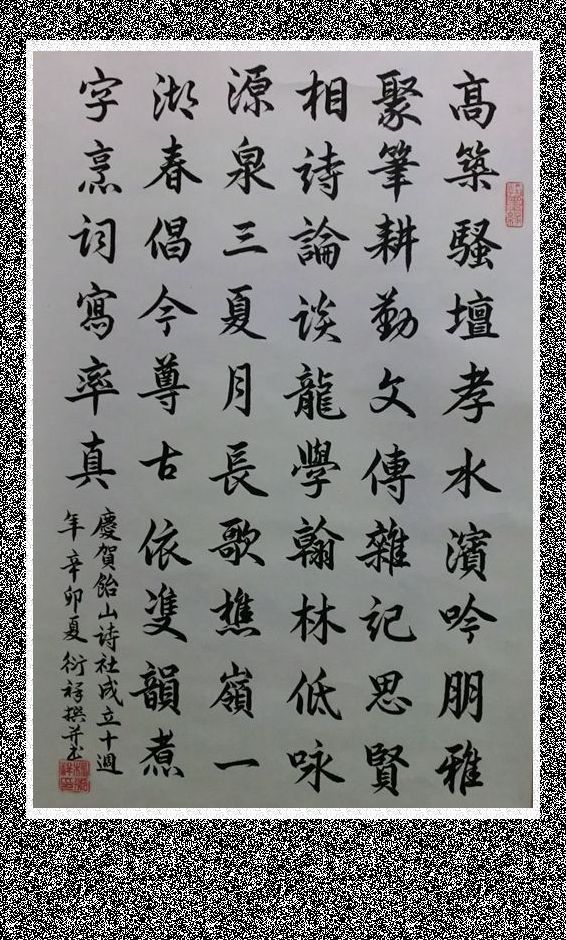 高築騷壇孝水濱吟朋雅
聚筆耕勤文傳雜記思賢
相詩論談龍學翰林低咏
源泉三夏月長歌樵嶺一
湖春倡今尊古依雙韻煮
字烹詞寫率真
慶賀飴山詩社成立十週
年辛卯夏衍祥撰并書